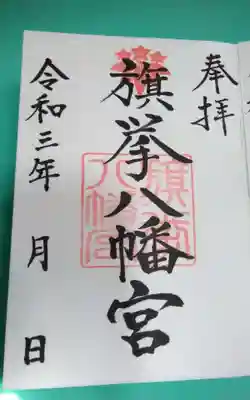 奉拝
旗挙八幡宮
旗挙八幡宮
令和三年 月 日